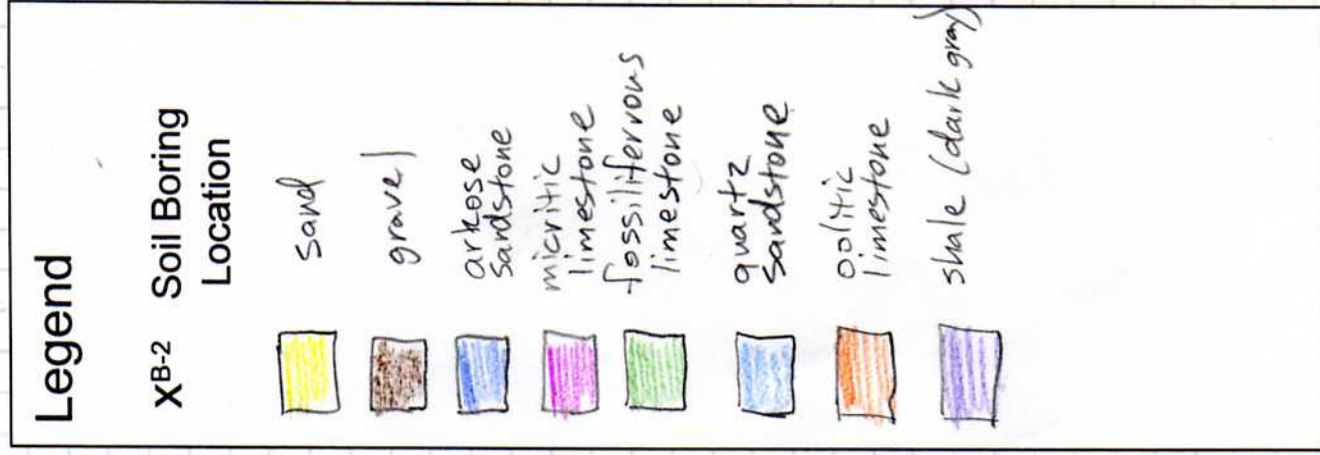 Legend
X B-2 Soil Boring
Location
sand
gravel
arkose
sandstone
micritic
limestone
fossiliferous
limestone
quartz
sandstone
oolitic
limestone
shale (dark gray)